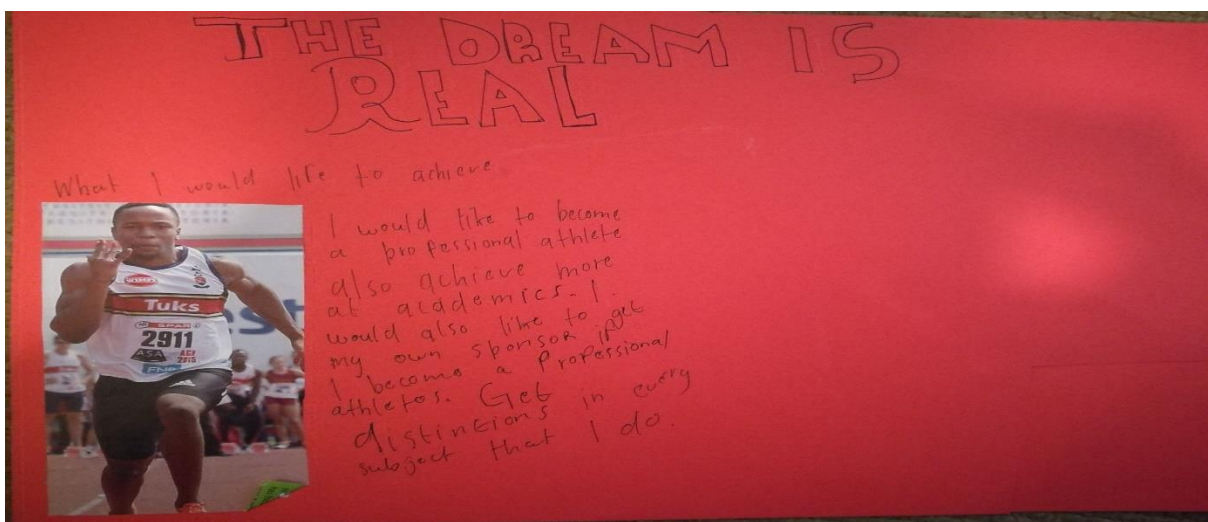 THE DREAM IS
REAL
What I would like to achieve
I would like to become
a professional athlete
also achieve more
at academics. I
would also like to get
my own sponsor if
I become a Professional
athletes. Get
distinctions in every
subject that I do.
Tuks
SPAR
2911
ASA
AGN
2015
FNB